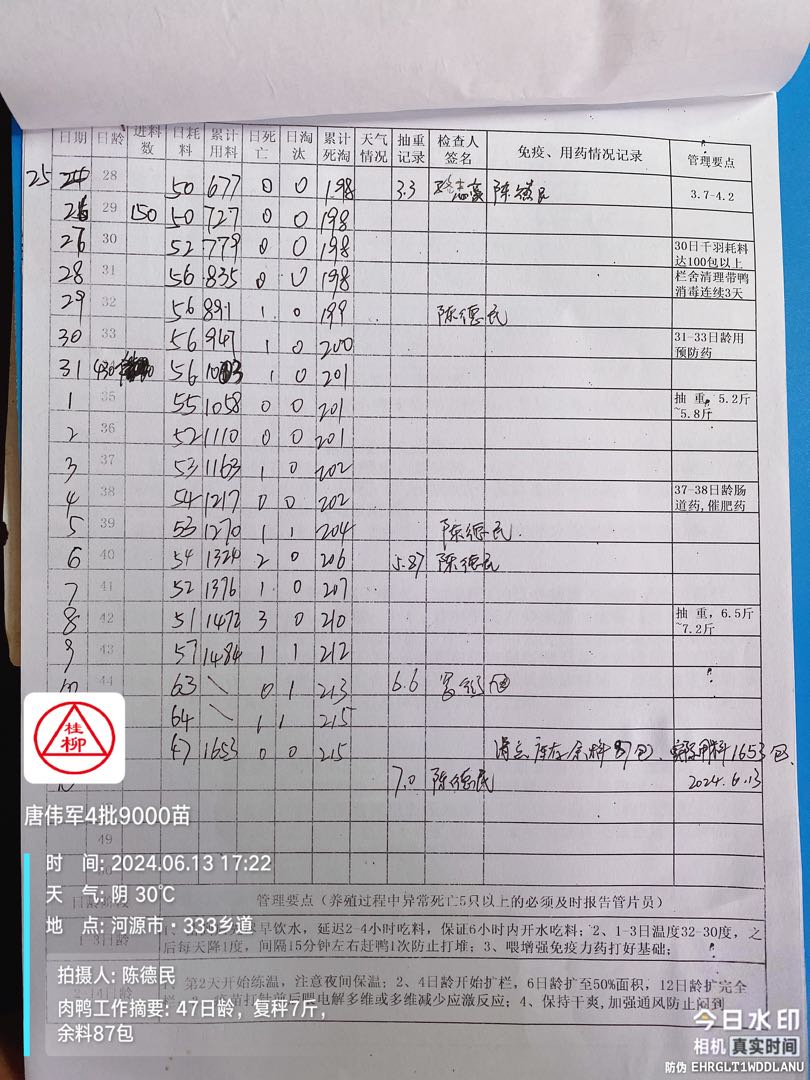 日期 日龄 进料数 日耗料 累计用料 日死亡 日淘汰 累计死淘 天气情况 抽重记录 检查人签名 免疫、用药情况记录 管理要点
25 28 50 677 0 0 198 3.3 陈德民 3.7-4.2
26 29 150 50 727 0 0 198
26 30 52 779 0 0 198 30日千羽耗料达100包以上
28 31 56 835 0 0 198 栏舍清理带鸭消毒连续3天
29 32 56 891 1 0 199 陈德民
30 33 56 947 1 0 200 31-33日龄用预防药
31 430 56 1003 1 0 201
1 35 55 1058 0 0 201 抽重，5.2斤~5.8斤
2 36 52 1110 0 0 201
3 37 53 1163 1 0 202
4 38 54 1217 0 0 202 37-38日龄肠道药,催肥药
5 39 53 1270 1 1 204 陈德民
6 40 54 1324 2 0 206 5.87 陈德民
7 41 52 1376 1 0 207
8 42 51 1472 3 0 210 抽重，6.5斤~7.2斤
9 43 57 1484 1 1 212
10 44 63 \ 0 1 213 6.6
64 \ 1 1 215
47 1653 0 0 215 清点库存余料87包、实际用料1653包、
7.0 陈德民 2024.6.13
49
桂柳
唐伟军4批9000苗
时 间: 2024.06.13 17:22
天 气: 阴 30℃
地 点: 河源市·333乡道
拍摄人: 陈德民
肉鸭工作摘要: 47日龄，复秤7斤，
余料87包
日龄阶段 管理要点（养殖过程中异常死亡5只以上的必须及时报告管片员）
1-3日龄 早饮水，延迟2-4小时吃料，保证6小时内开水吃料；2、1-3日温度32-30度，之
后每天降1度，间隔15分钟左右赶鸭1次防止打堆；3、喂增强免疫力药打好基础；
第2天开始练温，注意夜间保温；2、4日龄开始扩栏，6日龄扩至50%面积，12日龄扩完全
苗打针前后喂电解多维或多维减少应激反应；4、保持干爽,加强通风防止闷到
今日水印
相机 真实时间
防伪 EHRGLT1WDDLANU